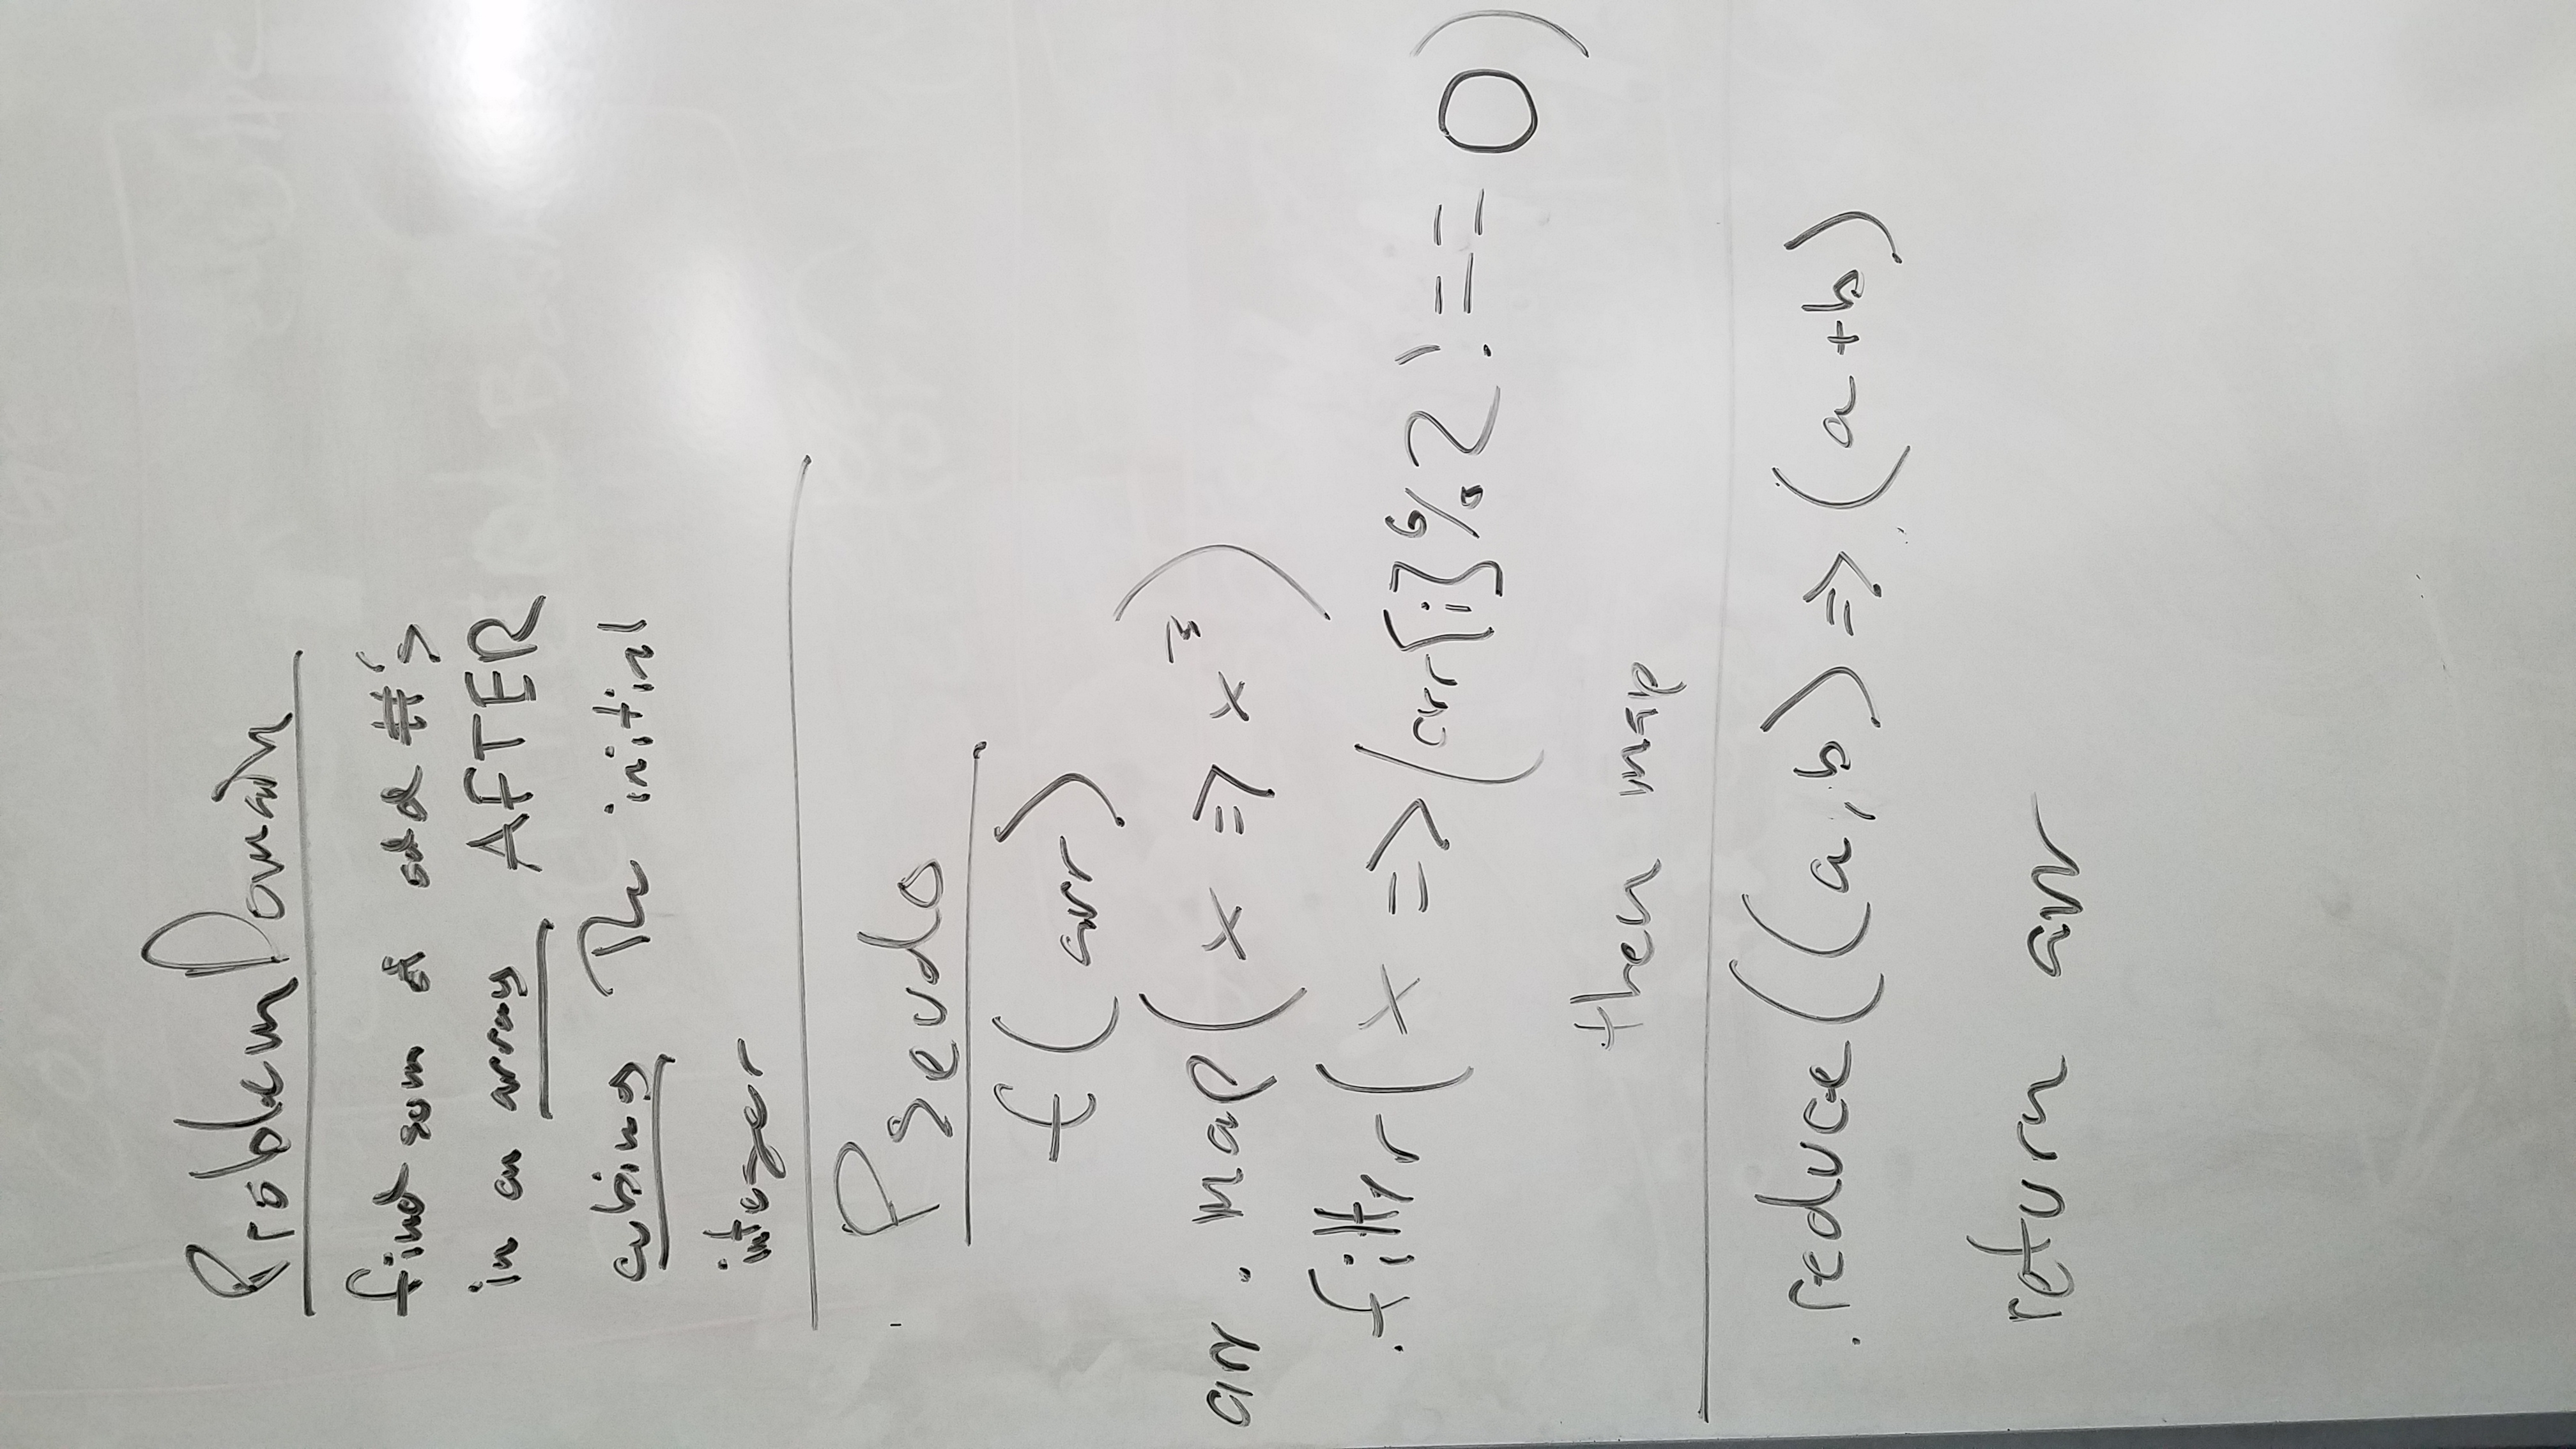 Problem Domain
find sum of odd #'s
in an array AFTER
cubing The initial
integer
Pseudo
f(arr)
arr.map(x => x³)
.filter(x => (arr[i] % 2 !== 0)
then map
.reduce((a,b) => (a+b)
return arr